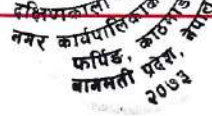 दक्षिणकाली
नगर कार्यपालिकाको
फर्पिङ, काठमाडौं
बागमती प्रदेश, नेपाल
२०७३